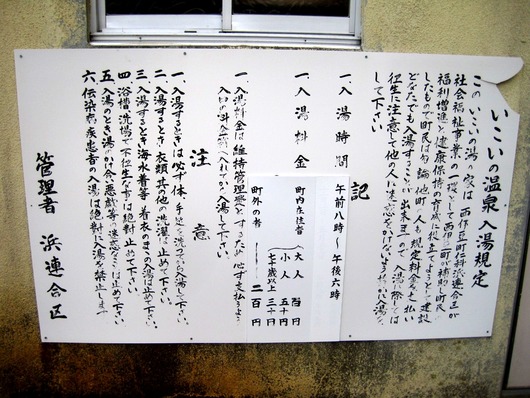 いこいの温泉入湯規定
このいこいの湯の家は西伊豆町仁科浜連合区が
社会福祉事業の一環として西伊豆町が補助し町民の
福利増進と健康保持の育成に役立てようと建設
したもので町民は勿論他町の人も規定料金を支払い
どなたでも入湯することが出来ますので入湯に際しては
衛生に注意して他の人に迷惑をかけないよう静かに入湯を
して下さい
記
一、入湯時間 午前八時〜午後六時
一、入湯料金 町内在住者 大人 百円
小人 五十円
七十歳以上 三十円
町外の者 二百円
一、入湯料金は維持管理費とするため必ず支払うよう
入口の料金箱へ入れてから入湯して下さい。
注意
一、入湯するときは必ず体、手足を洗ってから入湯して下さい。
二、入湯するとき衣類其の他の洗濯は止めて下さい。
三、入湯するとき海水着等着衣のまゝの入湯は止めて下さい。
四、浴槽、洗場で不衛生な事は絶対に止めて下さい。
五、入湯のとき湯のかけ合、悪戯等の迷惑なことは止めて下さい。
六、伝染病疾患者の入湯は絶対に入湯を禁止します。
管理者 浜連合区